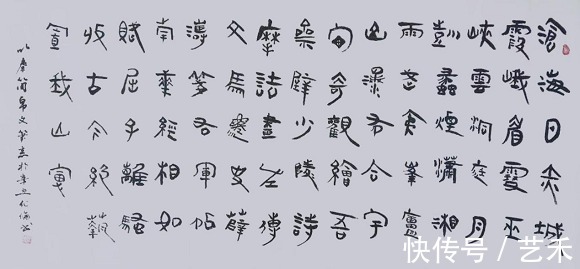 滄海日赤城
霞峨眉雪巫
峽雲洞庭月
彭蠡煙瀟湘
雨武夷峰廬
山瀑布合宇
宙奇觀繪吾
齋壁少陵詩
摩詰畫左傳
文馬遷史薛
濤箋右軍帖
南華經相如
賦屈子離騷
收古今絕藝
置我山窗
以秦簡帛文筆意於辛丑
快传号 / 艺禾